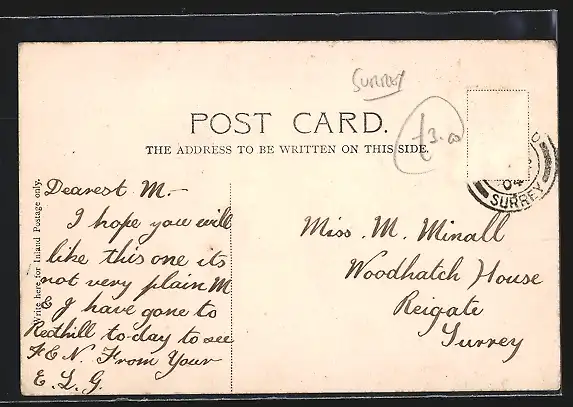 Surrey
£3.00
POST CARD.
THE ADDRESS TO BE WRITTEN ON THIS SIDE.
04
SURREY
Write here for Inland Postage only.
Dearest M.—
I hope you will
like this one its
not very plain M
& I have gone to
Redhill to-day to see
F & N. From Your
E. L. G.
Miss. M. Minall
Woodhatch House
Reigate
Surrey